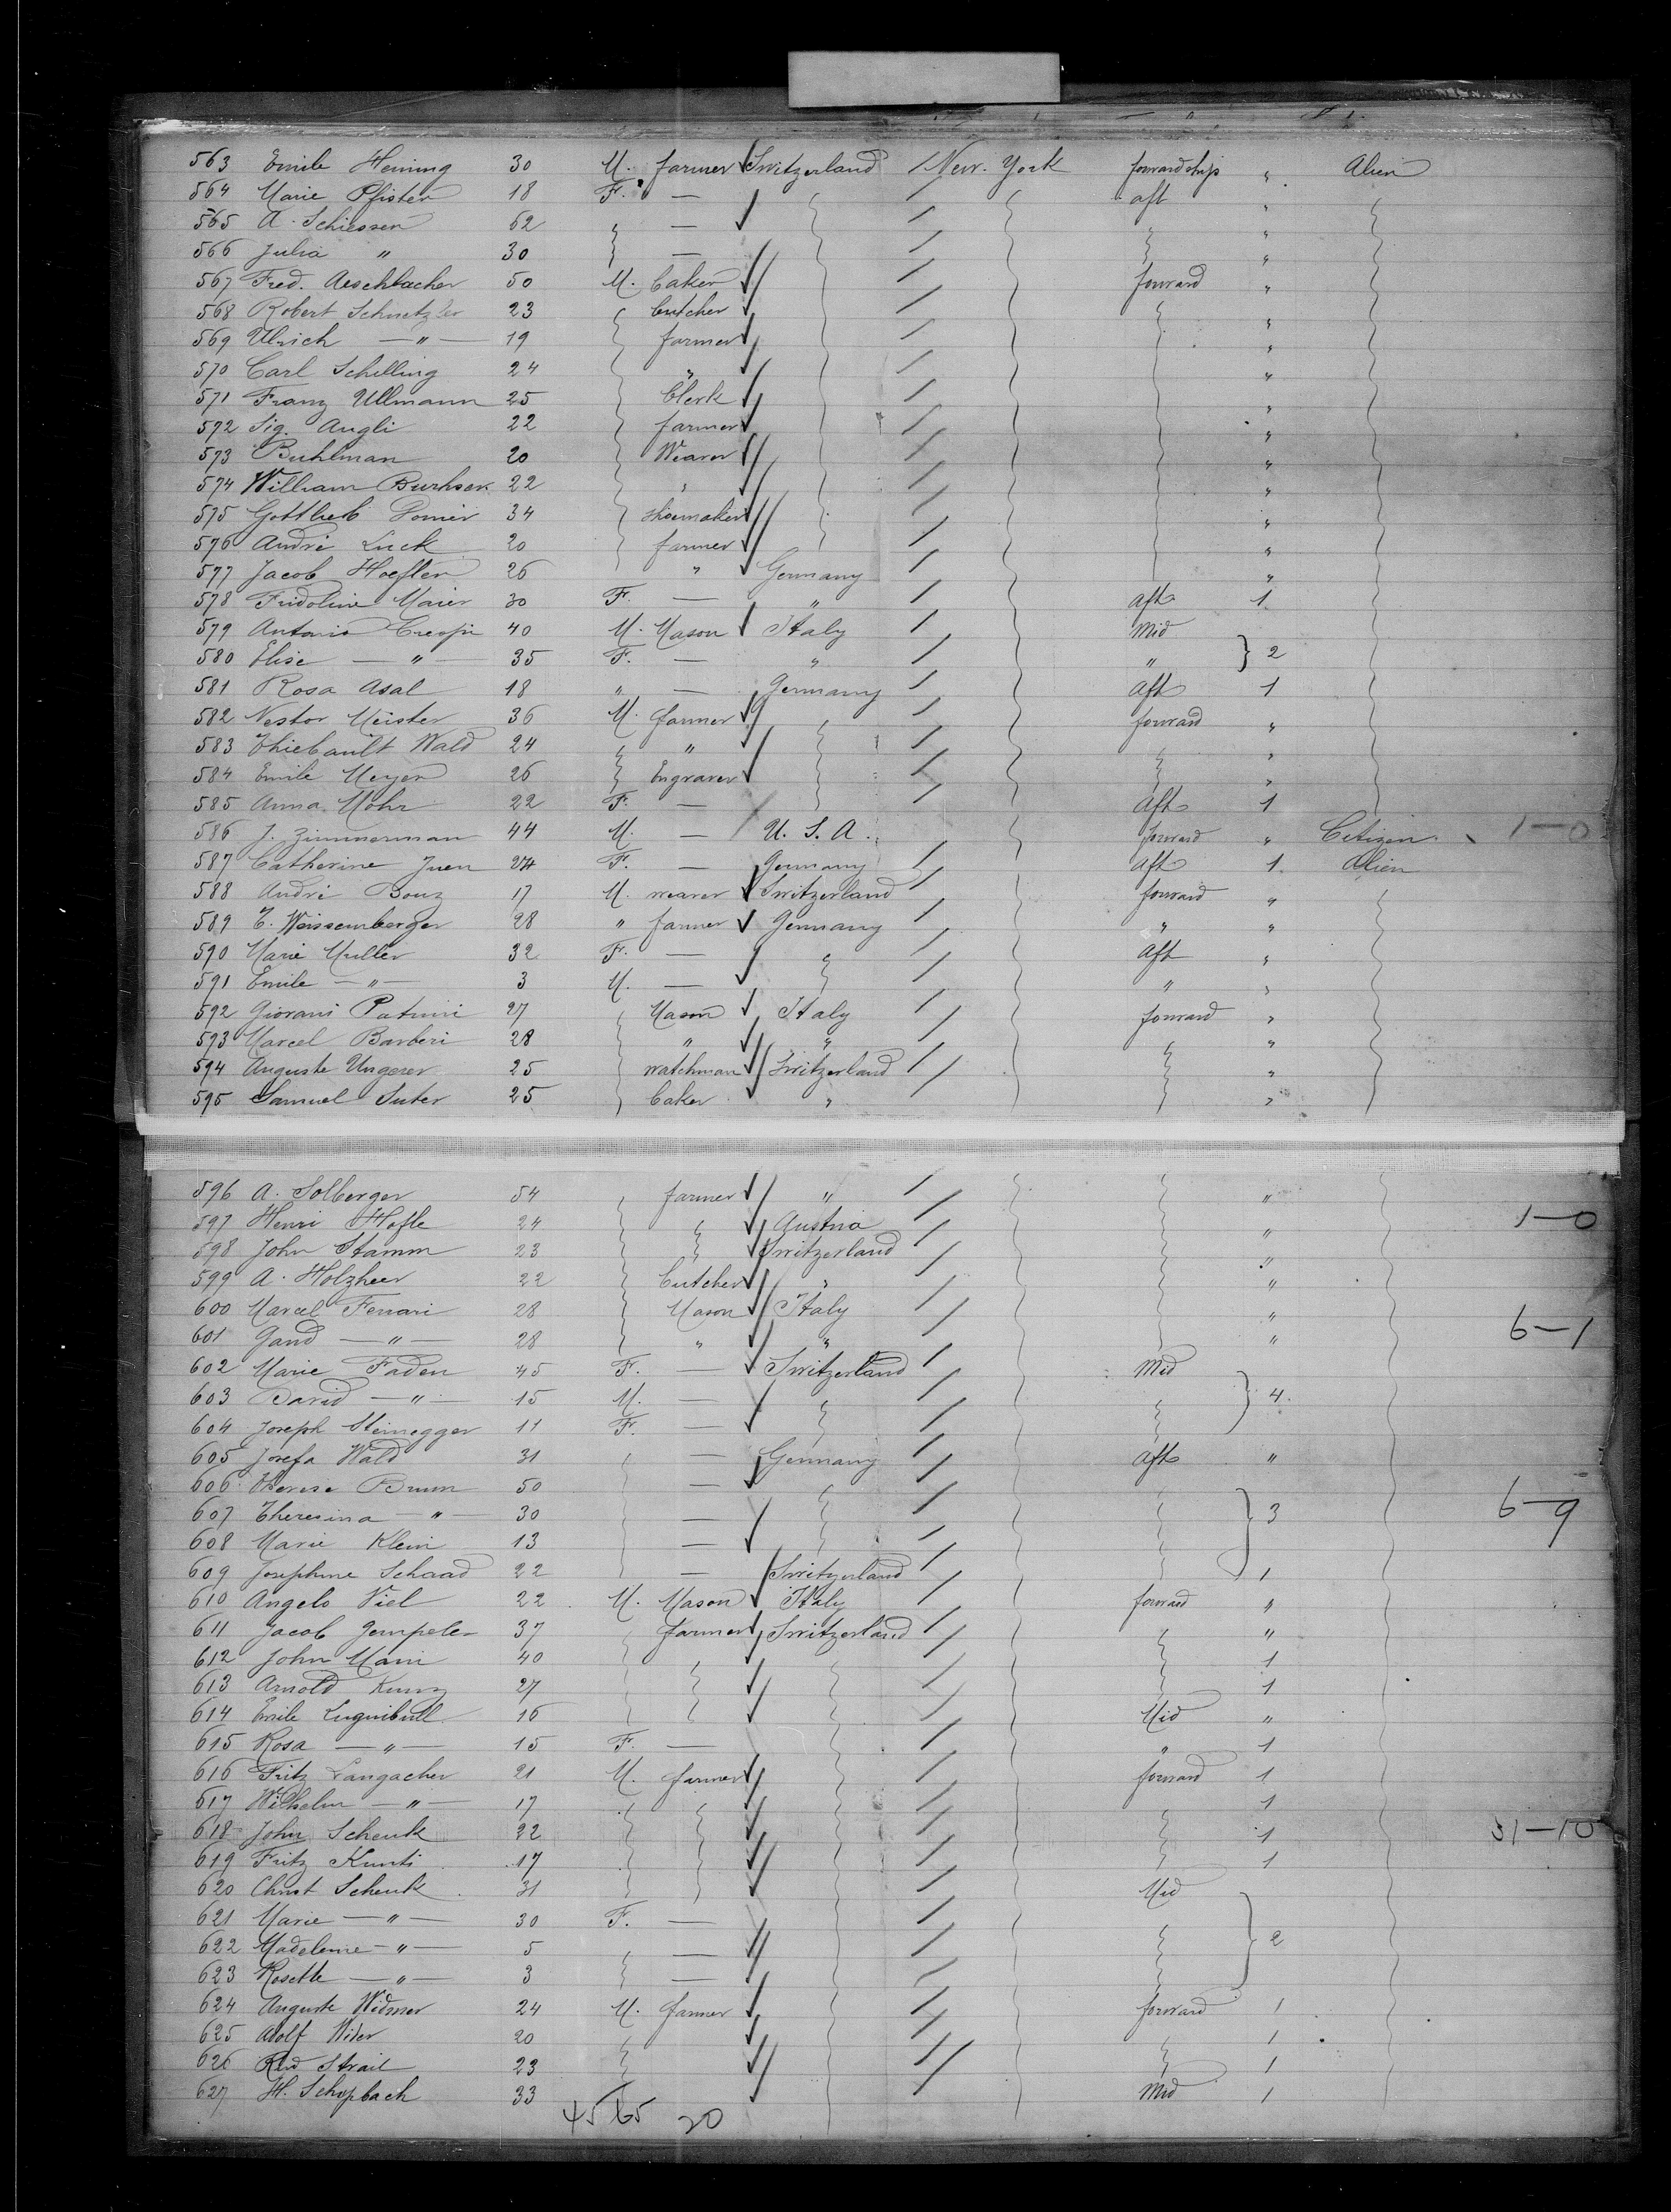 563 Emile Hening 30 M. farmer Switzerland New-York forwardships " Alien
564 Marie Pfister 18 F. — aft "
565 A. Schiesser 62 — "
566 Julia " 30 — "
567 Fred. Aeschbacher 50 M. baker forward "
568 Robert Schnetzler 23 butcher "
569 Ulrich —"— 19 farmer "
570 Carl Schilling 24 " "
571 Franz Ullmann 25 Clerk "
572 Sig. Augli 22 farmer "
573 Buhlman 20 Weaver "
574 William 22 " "
575 Gottlieb 34 shoemaker "
576 André Luck 20 farmer "
577 Jacob Hoefler 26 " Germany "
578 Fridoline Maier 30 F. — " aft 1
579 Antonio Crespi 40 M. Mason Italy Mid
580 Elise —"— 35 F. — " " } 2
581 Rosa Asal 18 " — Germany aft 1
582 Nestor Meister 36 M. farmer forward "
583 Thiebault Wald 24 " "
584 Emile Meyer 26 Engraver "
585 Anna Mohr 22 F. — aft 1
586 J. Zimmerman 44 M. — U. S. A. forward " Citizen 1—0
587 Catherine Juen 24 F. — Germany aft 1 Alien
588 André Bonz 17 M. weaver Switzerland forward "
589 T. Weissemberger 28 " farmer Germany " "
590 Marie Muller 32 F. — aft "
591 Emile —"— 3 M. — " "
592 Giovani 27 Mason Italy forward "
593 Marcel Barberi 28 " " "
594 Auguste Ungerer 25 watchman Switzerland "
595 Samuel Suter 25 baker " "
596 A. Solberger 54 farmer " "
597 Henri Hofle 24 Austria " 1—0
598 John Stamm 23 Switzerland "
599 A. Holzheer 22 butcher " "
600 Marcel Ferrari 28 Mason Italy "
601 Gand —"— 28 " " " 6—1
602 Marie Faden 45 F. — Switzerland Mid
603 David —"— 15 M. — } 4
604 Joseph Steinegger 11 F. —
605 Josefa Wald 31 — Germany aft "
606 Therese Brum 50 —
607 Theresina —"— 30 — } 3 6—9
608 Marie Klein 13 —
609 Josephine Schaad 22 — Switzerland 1
610 Angelo Viel 22 M. Mason Italy forward "
611 Jacob Gempeler 37 farmer Switzerland "
612 John 40 1
613 Arnold Kunz 27 1
614 Emile Luginbull 16 Mid "
615 Rosa —"— 15 F. — " 1
616 Fritz Langacher 21 M. farmer forward 1
617 Wilhelm —"— 17 1
618 John Schenk 22 1 31—10
619 Fritz Kunti 17 1
620 Christ Schenk 31 Mid
621 Marie —"— 30 F. —
622 Madeleine —"— 5 — } 2
623 Rosette —"— 3 —
624 Auguste Widmer 24 M. farmer forward 1
625 Adolf 20 1
626 Strail 23 1
627 H. Schopbach 33 Mid 1
45 65 20